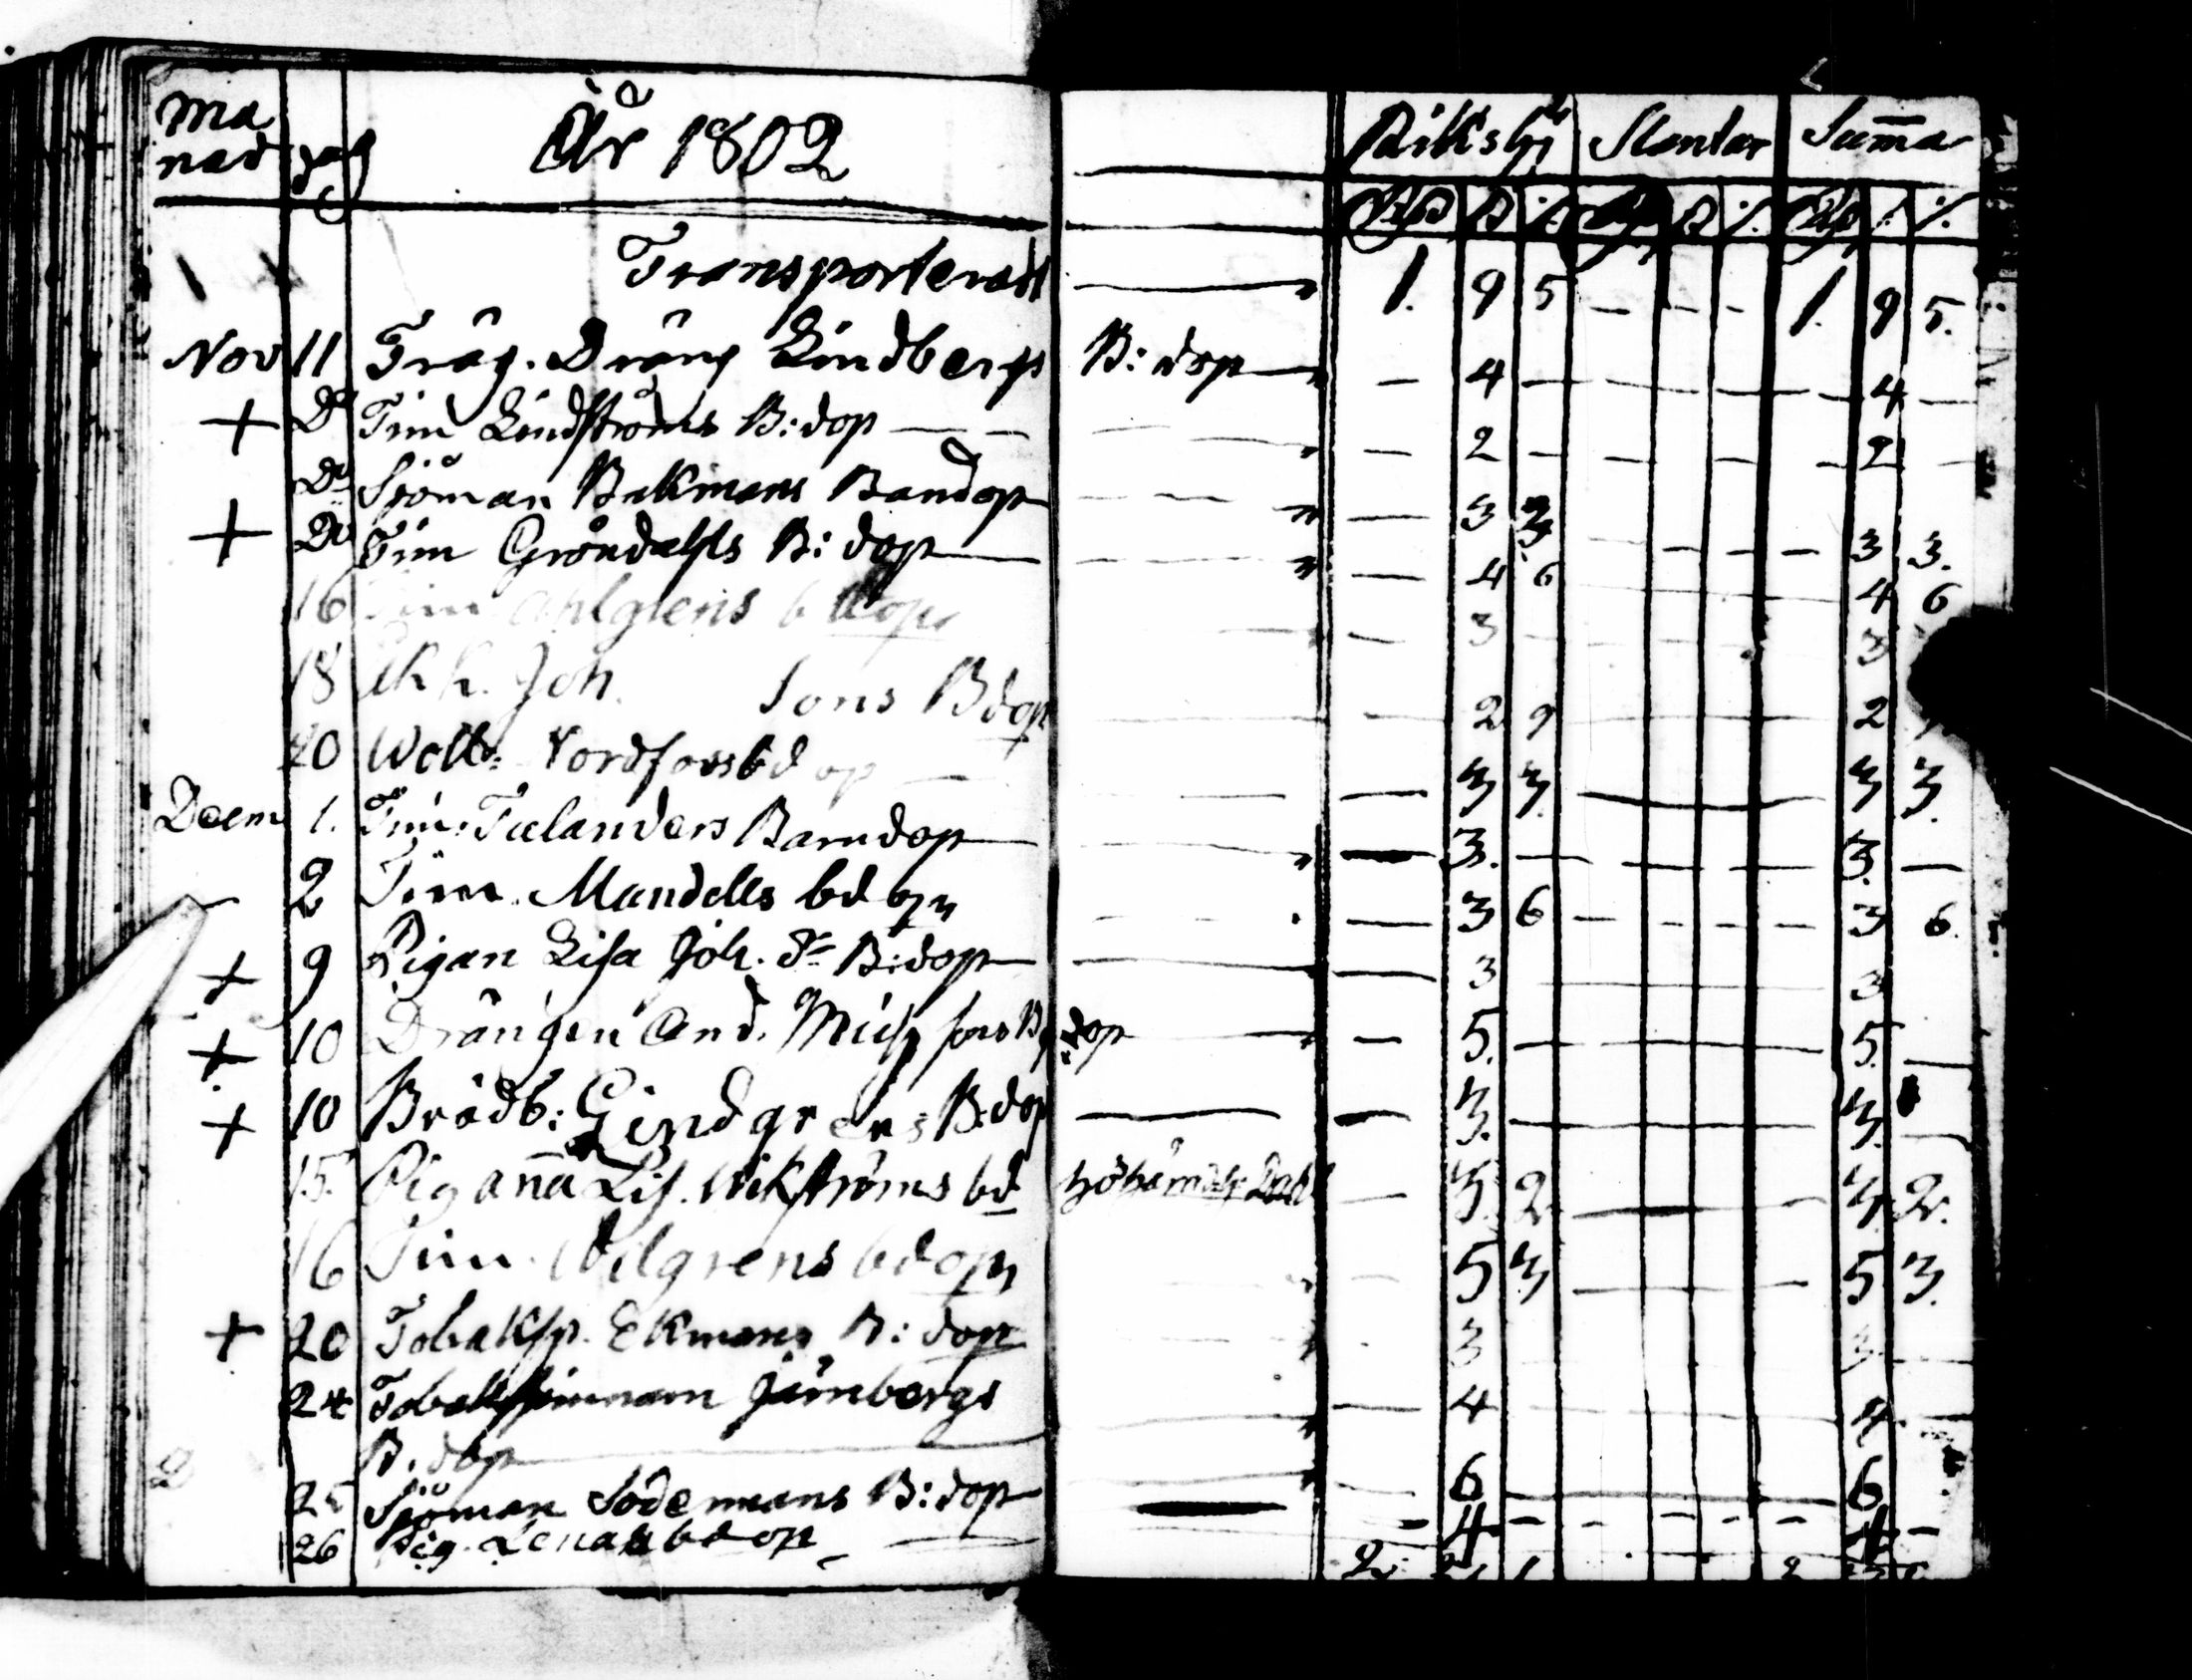 Må nad dag År 1802 Riksg Slantar Summa
Rd ß /. ß /. /.
Transporterat 1. 9 5 — — — 1. 9 5.
Nov 11 Träg. Dräng Lindbergs B: dop — 4 — — — — — 4 —
+ Do Tim Lindströms B: dop — — — 2 — — — — — 2 —
Do Sjöman Bekmans Barndop — 3 3 — — — — 3 3.
+ Do Tim Gröndahls B: dop — 4 6 4 6
16 Tim Ahlgrens b dop — 3 — 3
18 Joh. Sons B dop — 2 9 2
20 Nordforss bd op — 3 3. — 3 3.
Decem 1. Tim: Tulanders Barndop — 3. — — — — 3. —
2 Tim. Mandells bd op — 3 6 — — — — 3 6.
+ 9 Pigan Lisa Joh. dr B: dop — 3 3
+ 10 Drängen And. sons B dop — 5. — 5. —
+ 10 Brädb: Lindgrens B: dop — 3. — 3. —
15. Pig anna Lis. Wikströms bd — 3. 2 — 3. 2.
16 Tim. bd op — 5 3 — 5 3.
+ 20 Tobaksp. Ekmans B: dop 3 3
24 Tobakspinnare Järnbergs
B. dop — 4 4
25 Sjöman Södermans B: dop — 6 — 6
26 Pig. Lenas bd op — 4 — — — — — 4 —
2